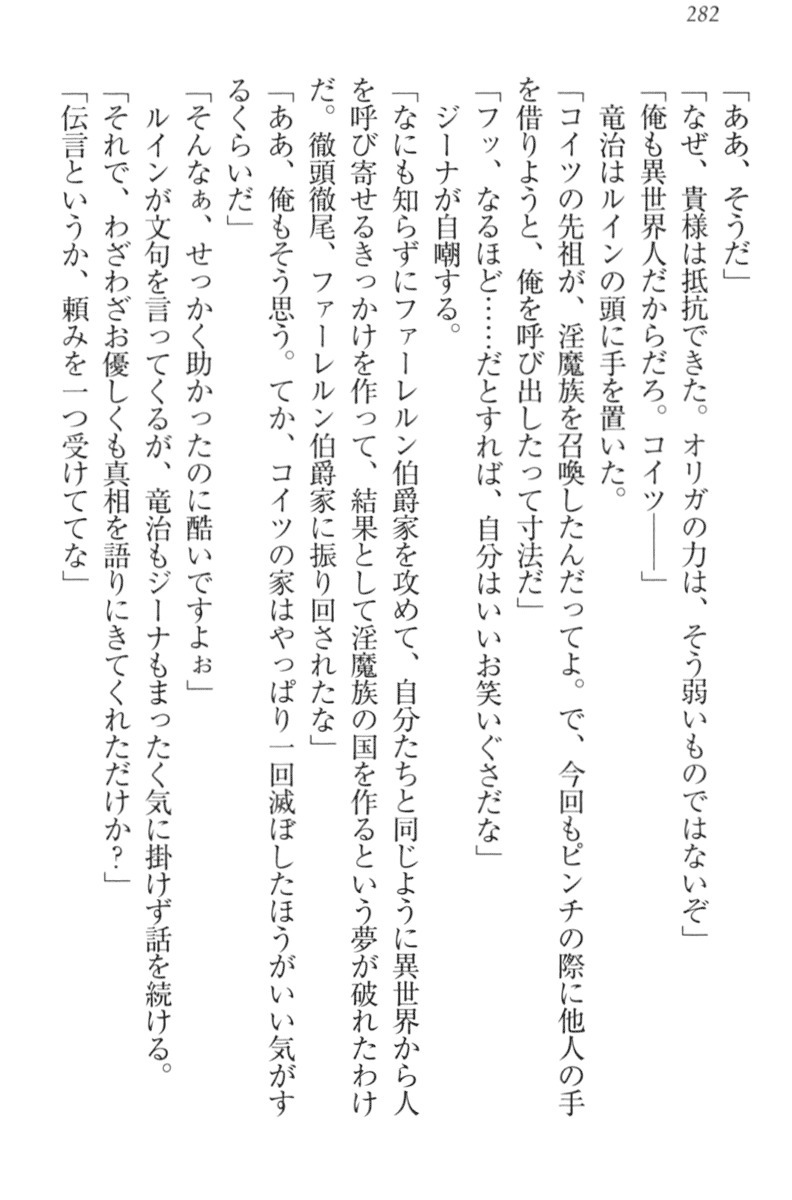 282
「ああ、そうだ」
「なぜ、貴様は抵抗できた。オリガの力は、そう弱いものではないぞ」
「俺も異世界人だからだろ。コイツ――」
　竜治はルインの頭に手を置いた。
「コイツの先祖が、淫魔族を召喚したんだってよ。で、今回もピンチの際に他人の手
を借りようと、俺を呼び出したって寸法だ」
「フッ、なるほど……だとすれば、自分はいいお笑いぐさだな」
　ジーナが自嘲する。
「なにも知らずにファーレルン伯爵家を攻めて、自分たちと同じように異世界から人
を呼び寄せるきっかけを作って、結果として淫魔族の国を作るという夢が破れたわけ
だ。徹頭徹尾、ファーレルン伯爵家に振り回されたな」
「ああ、俺もそう思う。てか、コイツの家はやっぱり一回滅ぼしたほうがいい気がす
るくらいだ」
「そんなぁ、せっかく助かったのに酷いですよぉ」
　ルインが文句を言ってくるが、竜治もジーナもまったく気に掛けず話を続ける。
「それで、わざわざお優しくも真相を語りにきてくれただけか？」
「伝言というか、頼みを一つ受けててな」